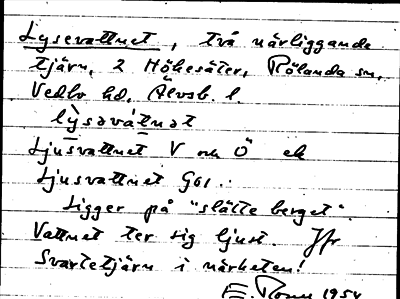 Lysevattnet, två närliggande
tjärn, 2 Hökesäter, Rölanda sn,
Vedbo hd, Älvsb. l.
lỳsəvát̄nət
Ljusvattnet V och Ö ek
Ljusvattnet G61.
Ligger på "slätte berget".
Vattnet ter sig ljust. Jfr
Svartetjärn i närheten!
E. 1954